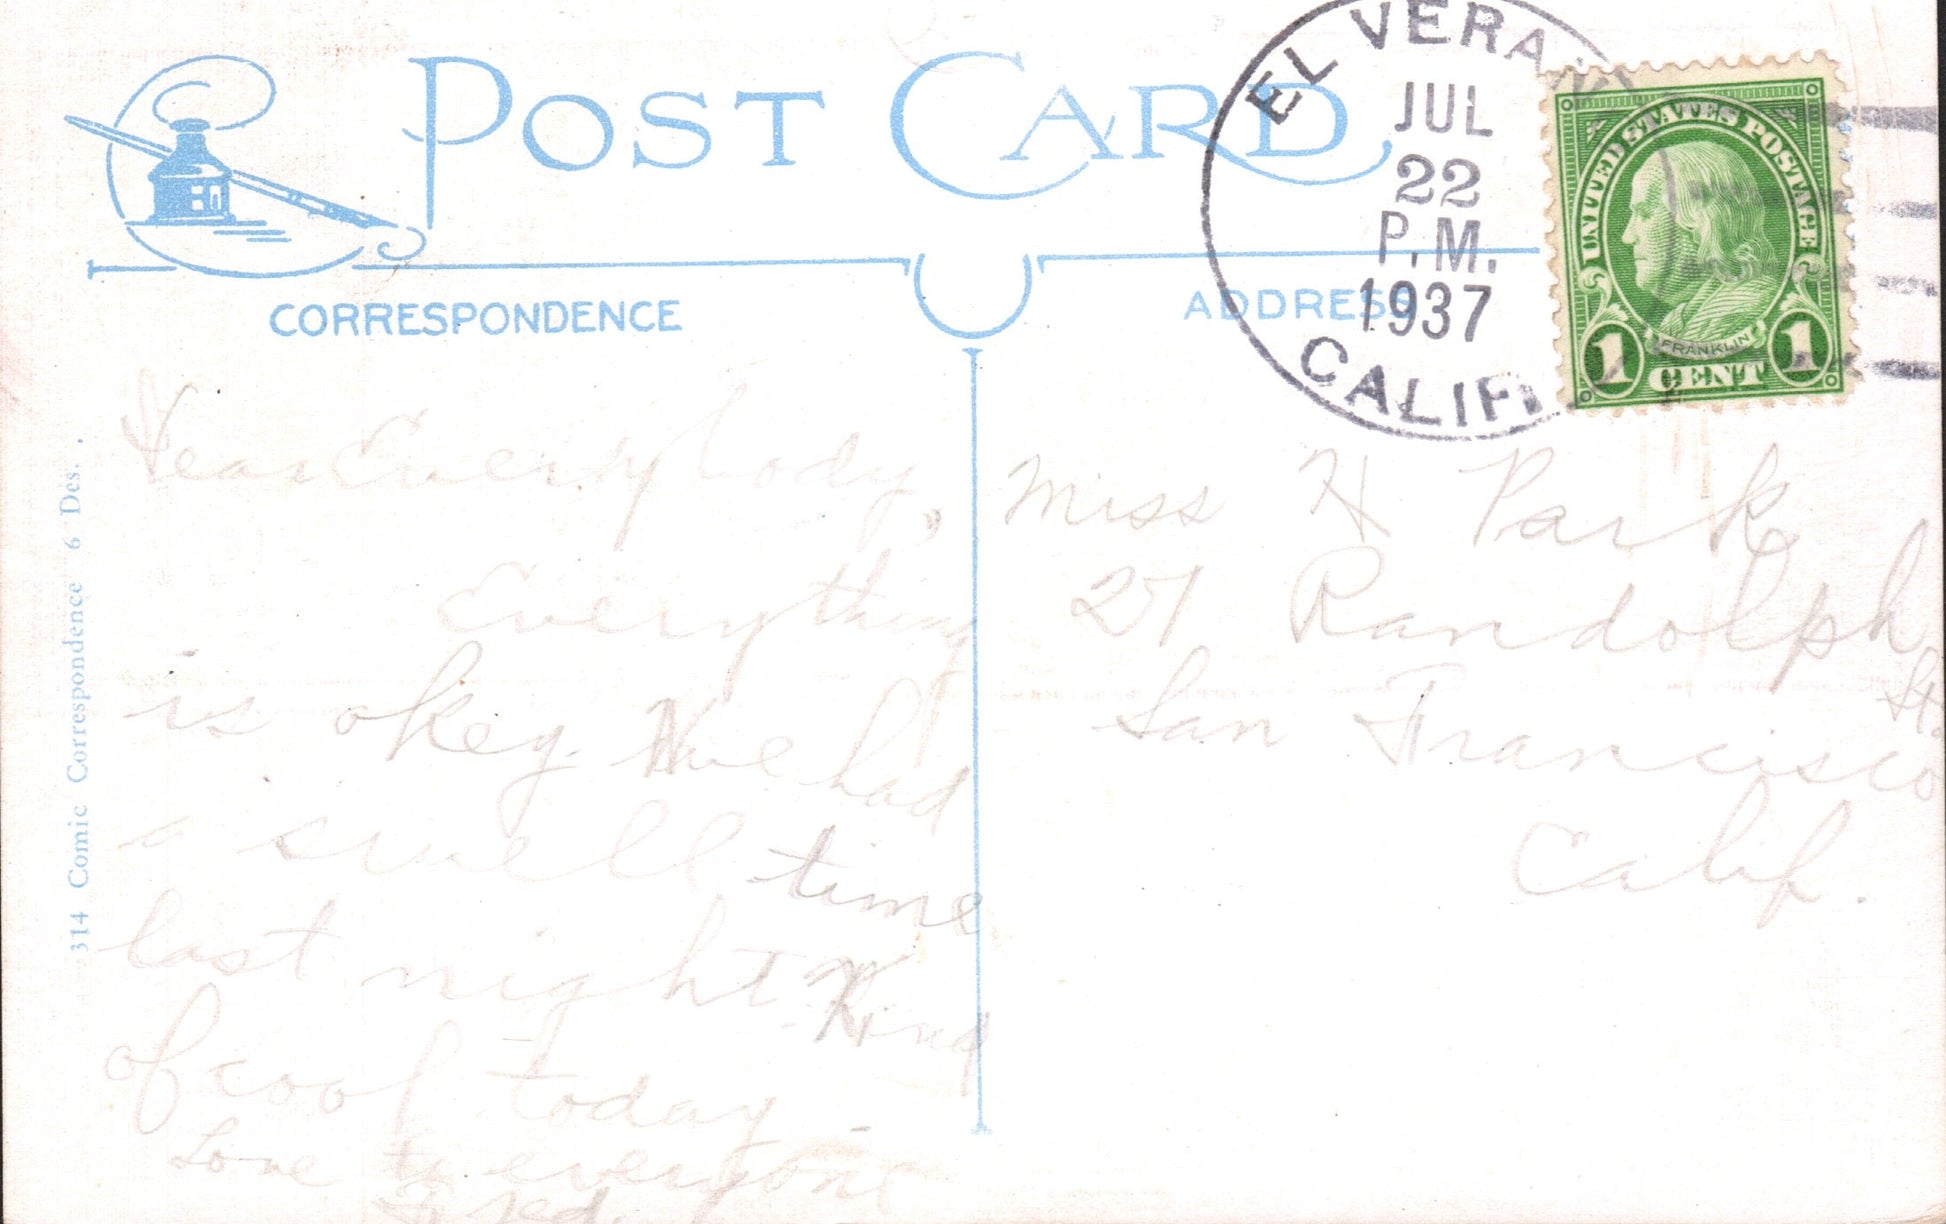 POST CARD
CORRESPONDENCE
ADDRESS
EL VERANO
JUL
22
P.M.
1937
CALIF.
UNITED STATES POSTAGE
FRANKLIN
1 CENT 1
314 Comic Correspondence 6 Des.
Dear Everybody,
Everything
is okey. We had
a swell time
last night. Kind
of cool today.
Love to everyone
Fred.
Miss H Park
27 Randolph
St.
San Francisco
Calif.